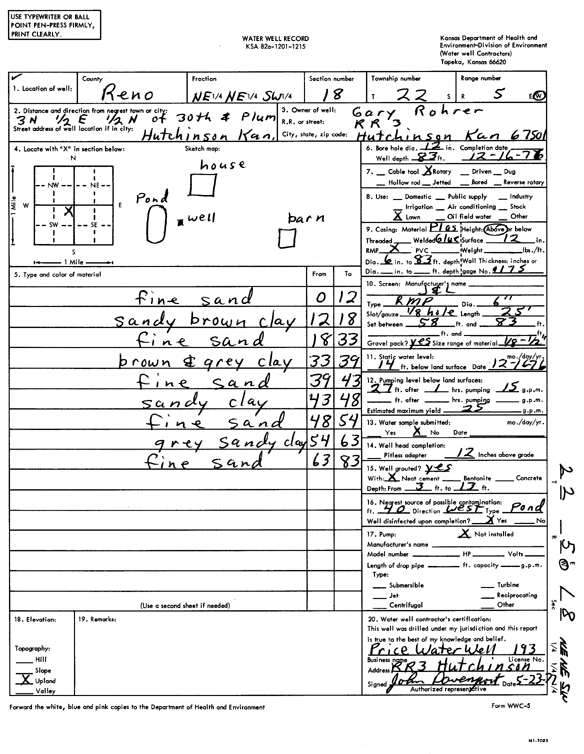 USE TYPEWRITER OR BALL
POINT PEN-PRESS FIRMLY,
PRINT CLEARLY.
WATER WELL RECORD
KSA 82a-1201-1215
Kansas Department of Health and
Environment-Division of Environment
(Water well Contractors)
Topeka, Kansas 66620
1. Location of well: County Reno Fraction NE 1/4 NE 1/4 SW 1/4 Section number 18 Township number T 22 S Range number R 5 E(W)
2. Distance and direction from nearest town or city: 3N 1/2 E 1/2 N of 30th & Plum
Street address of well location if in city: Hutchinson Kan.
3. Owner of well: Gary Rohrer
R.R. or street: RR 3
City, state, zip code: Hutchinson Kan 67501
4. Locate with "X" in section below:
N
NW NE
W E
X
SW SE
S
1 Mile
1 Mile
Sketch map:
house
Pond
well
barn
6. Bore hole dia. 12 in. Completion date
Well depth 83 ft. 12-16-76
7. Cable tool X Rotary Driven Dug
Hollow rod Jetted Bored Reverse rotary
8. Use: Domestic Public supply Industry
Irrigation Air conditioning Stock
X Lawn Oil field water Other
9. Casing: Material Plas Height: Above or below
Threaded Welded Glue Surface 12 in.
RMP X PVC Weight lbs./ft.
Dia. 6 in. to 83 ft. depth Wall Thickness: inches or
Dia. in. to ft. depth gage No.
10. Screen: Manufacturer's name
J&L
Type RMP Dia. 6"
Slot/gauze 1/8 hole Length 25'
Set between 58 ft. and 83 ft.
ft. and ft.
Gravel pack? yes Size range of material 1/8-1/2"
11. Static water level: mo./day/yr.
14 ft. below land surface Date 12-16-76
12. Pumping level below land surfaces:
27 ft. after 1 hrs. pumping 15 g.p.m.
ft. after hrs. pumping g.p.m.
Estimated maximum yield 25 g.p.m.
13. Water sample submitted: mo./day/yr.
Yes X No Date
14. Well head completion:
Pitless adapter 12 Inches above grade
15. Well grouted? yes
With: X Neat cement Bentonite Concrete
Depth: From 3 ft. to 13 ft.
16. Nearest source of possible contamination:
ft. 40 Direction West Type Pond
Well disinfected upon completion? X Yes No
17. Pump: X Not installed
Manufacturer's name
Model number HP Volts
Length of drop pipe ft. capacity g.p.m.
Type:
Submersible Turbine
Jet Reciprocating
Centrifugal Other
5. Type and color of material From To
fine sand 0 12
sandy brown clay 12 18
fine sand 18 33
brown & grey clay 33 39
fine sand 39 43
sandy clay 43 48
fine sand 48 54
grey sandy clay 54 63
fine sand 63 83
(Use a second sheet if needed)
18. Elevation:
Topography:
Hill
Slope
X Upland
Valley
19. Remarks:
20. Water well contractor's certification:
This well was drilled under my jurisdiction and this report
is true to the best of my knowledge and belief.
Price Water Well 193
Business name License No.
Address RR3 Hutchinson
Signed John Davenport Date 5-23-77
Authorized representative
T 22 - R 5 E W Sec 18 NE NE SW
1/4 1/4 1/4
Forward the white, blue and pink copies to the Department of Health and Environment
Form WWC-5